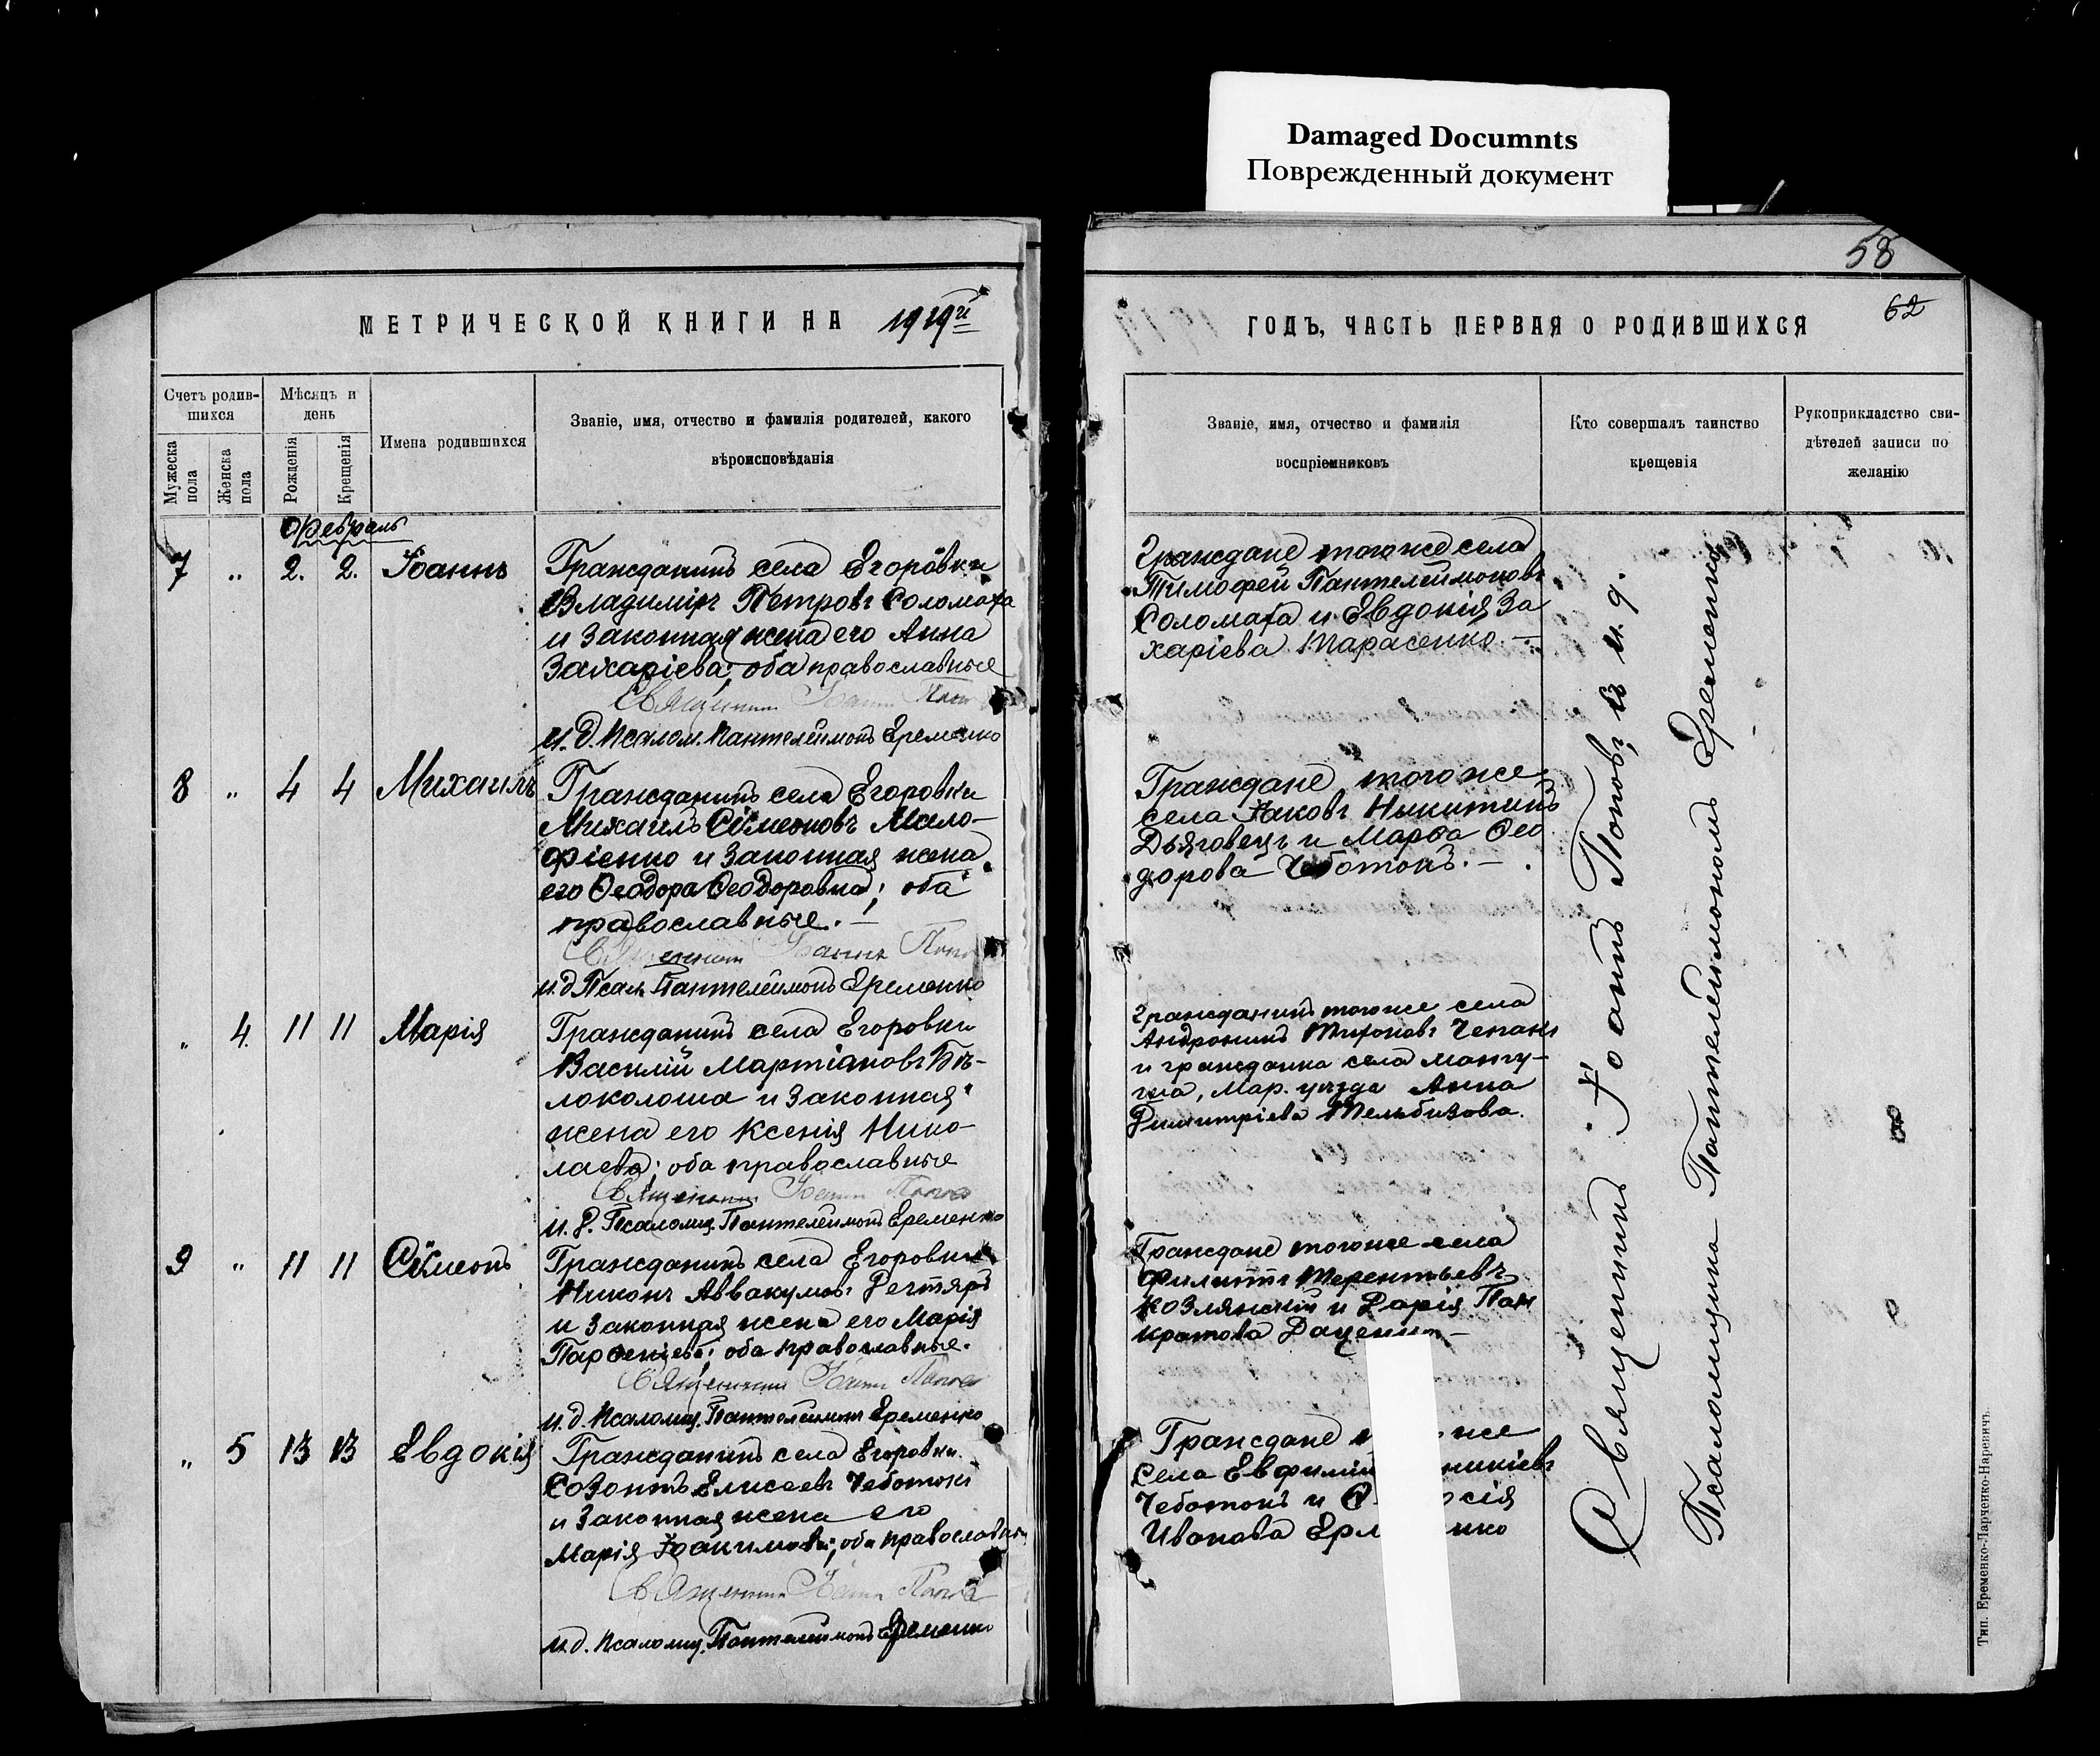 Damaged Documnts
Поврежденный документ
58
62
МЕТРИЧЕСКОЙ КНИГИ НА 1919й
ГОДЪ, ЧАСТЬ ПЕРВАЯ О РОДИВШИХСЯ
Счетъ родив-
шихся
Мужеска пола
Женска пола
Мѣсяцъ и
день
Рожденія
Крещенія
Имена родившихся
Званіе, имя, отчество и фамилія родителей, какого
вѣроисповѣданія
Званіе, имя, отчество и фамилія
воспріемниковъ
Кто совершалъ таинство
крещенія
Рукоприкладство сви-
дѣтелей записи по
желанію
Февраль
7 „ 2. 2. Іоаннъ
Гражданинъ села Егоровки
Владиміръ Петровъ Соломаха
и законная жена его Анна
Захаріева; оба православные
Священникъ Іоаннъ Попов
и. д. Псалом. Пантелеимонъ Еременко
Граждане того же села
Тимофей Пантелеимоновъ
Соломаха и Евдокія За
харіева Тарасенко. —
8 „ 4 4 Михаилъ
Гражданинъ села Егоровки
Михаилъ Сѵмеоновъ Мало-
фіенко и законная жена
его Ѳеодора Ѳеодоровна; оба
православные. —
Священникъ Іоаннъ Попов
и. д Псал. Пантелеимонъ Еременко
Граждане того же
села Іаковъ Никитинъ
Дьяговецъ и Марѳа Ѳео
дорова Чеботокъ. —
„ 4. 11 11 Марія
Гражданинъ села Егоровки
Василій Мартіановъ Бѣ-
локолоша и законная
жена его Ксенія Нико-
лаева; оба православные
Священникъ Іоаннъ Попов
и. д. Псаломщ. Пантелеимонъ Еременко
Гражданинъ того же села
Андроникъ Тихоновъ
и гражданка села Мангу-
ша, Мар. уѣзда Анна
Димитріева
9 „ 11 11 Сѵмеонъ
Гражданинъ села Егоровки
Никонъ Аввакумовъ Дегтярь
и законная жена его Марія
Парѳеніева; оба православные.
Священникъ Іоаннъ Попов
и. д. Псаломщ. Пантелеимонъ Еременко
Граждане того же села
Филиппъ Терентьевъ
Козлянскій и Дарія Пан
кратова
„ 5 13 13 Евдокія
Гражданинъ села Егоровки
Созонтъ Елисеевъ Чеботокъ
и законная жена его
Марія Іоакимова; оба православные
Священникъ Іоаннъ Попов
и. д. Псаломщ. Пантелеимонъ Еременко
Граждане же
села Евфимій
Чеботокъ и
Иванова
Священникъ Іоаннъ Поповъ, съ и. д.
Псаломщика Пантелеимономъ Еременко
Тип. Еременко-Ларченко-Наревичъ.